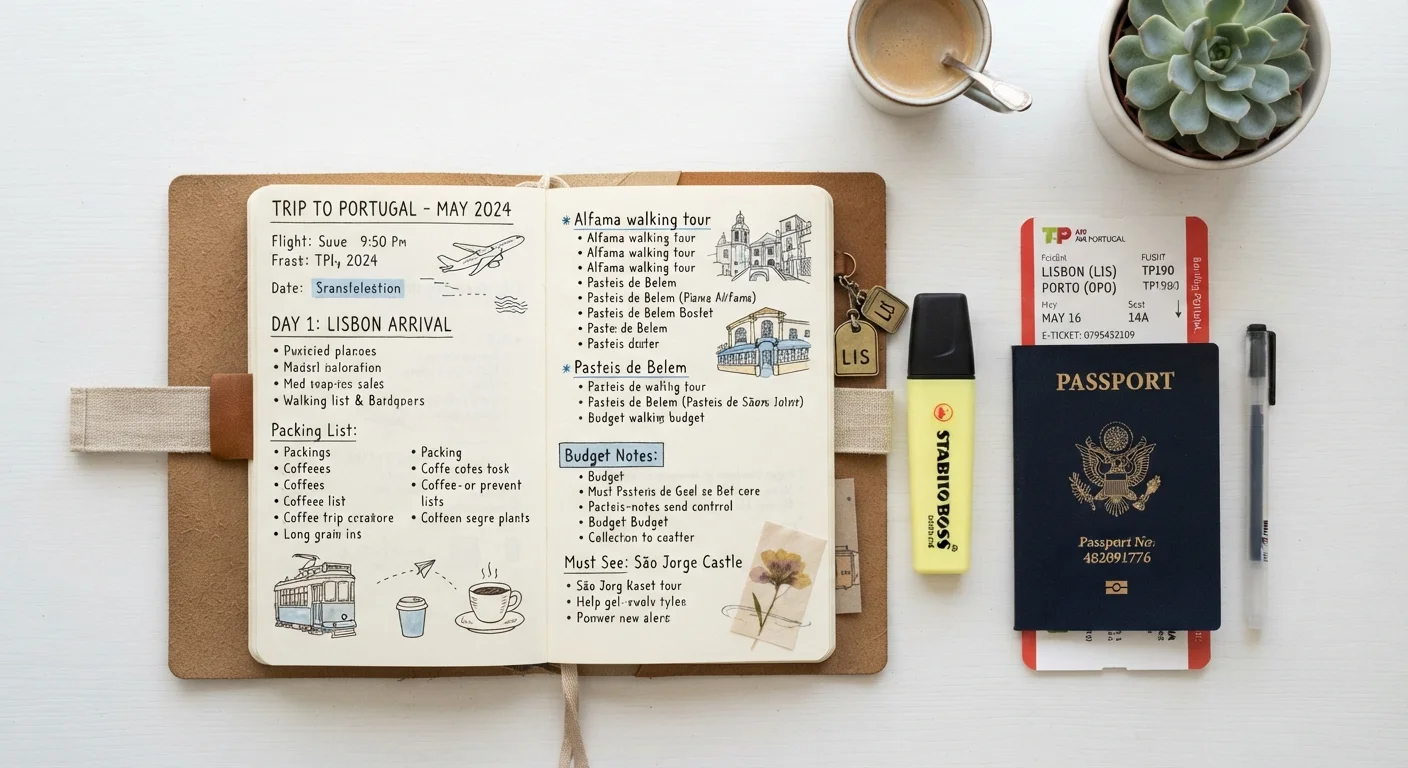 TRIP TO PORTUGAL - MAY 2024
Flight: Suue 9:50 Pm
Frast: TPI, 2024
Date: Sransfelestion
DAY 1: LISBON ARRIVAL
• Puxicied planoes
• Madsrl baloration
• Med sales
• Walking list & Bardgpers
Packing List:
• Packings
• Coffeees
• Coffees
• Coffeee list
• Coffee trip
• Long grain ins
• Packing
• Coffe cotes tosk
• Coffee-or prevent
lists
• Coffeen segre plants
* Alfama walking tour
• Alfama walking tour
• Alfama walking tour
• Alfama walking tour
• Pasteis de Belem
• Pasteis de Belem (Piana Alfama)
• Pasteis de Belem Bostet
• Paste: de Belem
• Pasteis
* Pasteis de Belem
• Pasteis de walhlg tour
• Pasteis de Belem (Pasteis de Sãors Joint)
• Budget walking budget
Budget Notes:
• Budget
• Must Pasteris de Geel se Bet core
• Pacteis-notes send control
• Budget Budget
• Collection to
Must See: São Jorge Castle
• São Jorg Kaset tour
• Help tyles
• Ponwer new alers
LIS
LIS
STABILO BOSS
TP AIR PORTUGAL
LISBON (LIS)
PORTO (OPO)
TP190
TP1980
MAY 16
14A
E-TICKET: 0795452109
PASSPORT
Passport No:
482091776